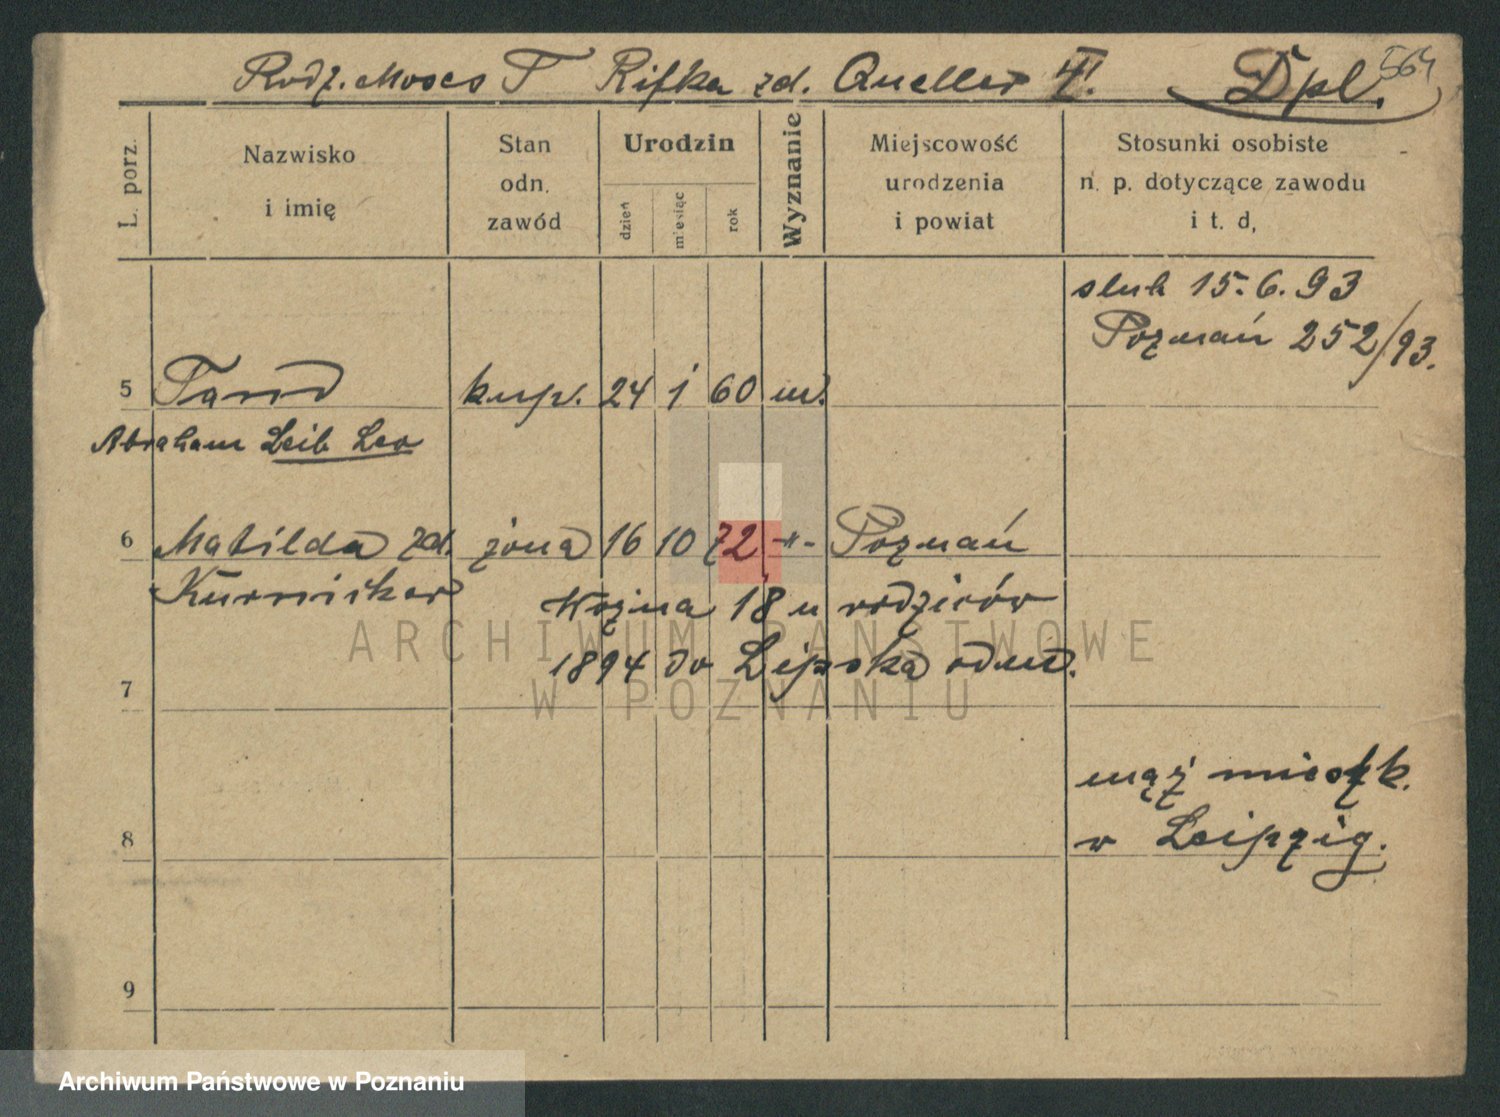 Rodz. Moses T Rifka zd. Queller
Dpl.
564
L. porz.
Nazwisko
i imię
Stan
odn.
zawód
Urodzin
dzień
miesiąc
rok
Wyznanie
Miejscowość
urodzenia
i powiat
Stosunki osobiste
n. p. dotyczące zawodu
i t. d,
slub 15.6.93
Poznań 252/93.
5 Tand kup. 24 1 60 m.
Abraham Leib Leo
6 Matilda zd. żona 16 10 72 -"- Poznań
Kurnicker
Wojna 18 u rodziców
1894 do Lipska odmd.
7
mąż mieszk.
w Leipzig.
8
9
ARCHIWUM PAŃSTWOWE
W POZNANIU
Archiwum Państwowe w Poznaniu